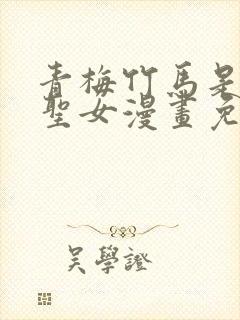 青梅竹馬是
聖女漫畫免
吳學證